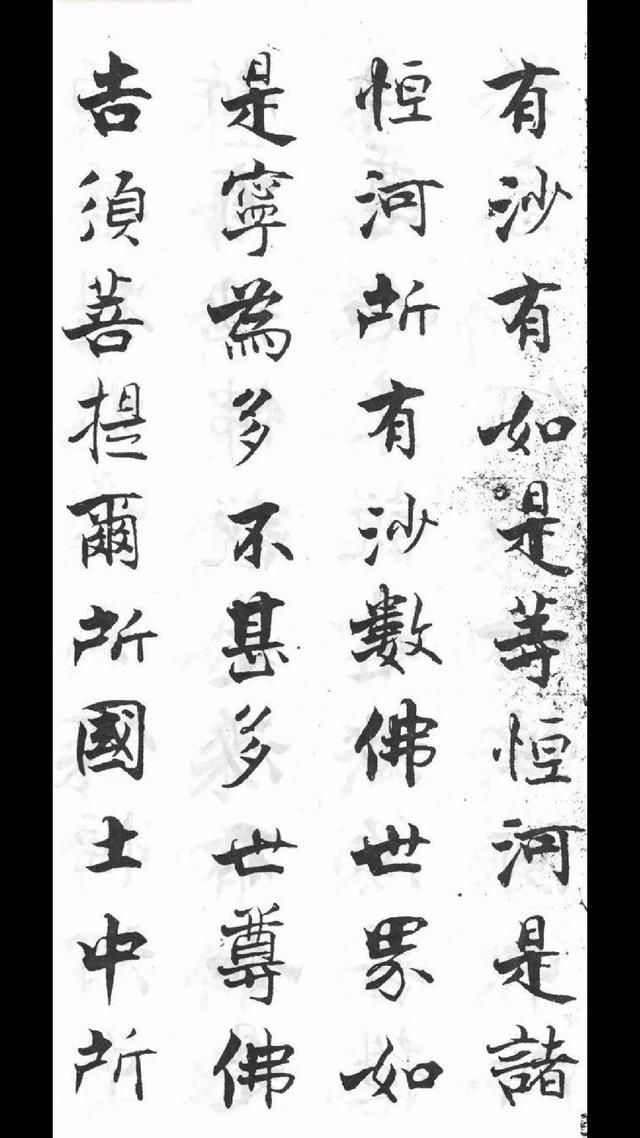 有沙有如是等恒河是諸
恒河所有沙數佛世界如
是寧為多不甚多世尊佛
告須菩提爾所國土中所